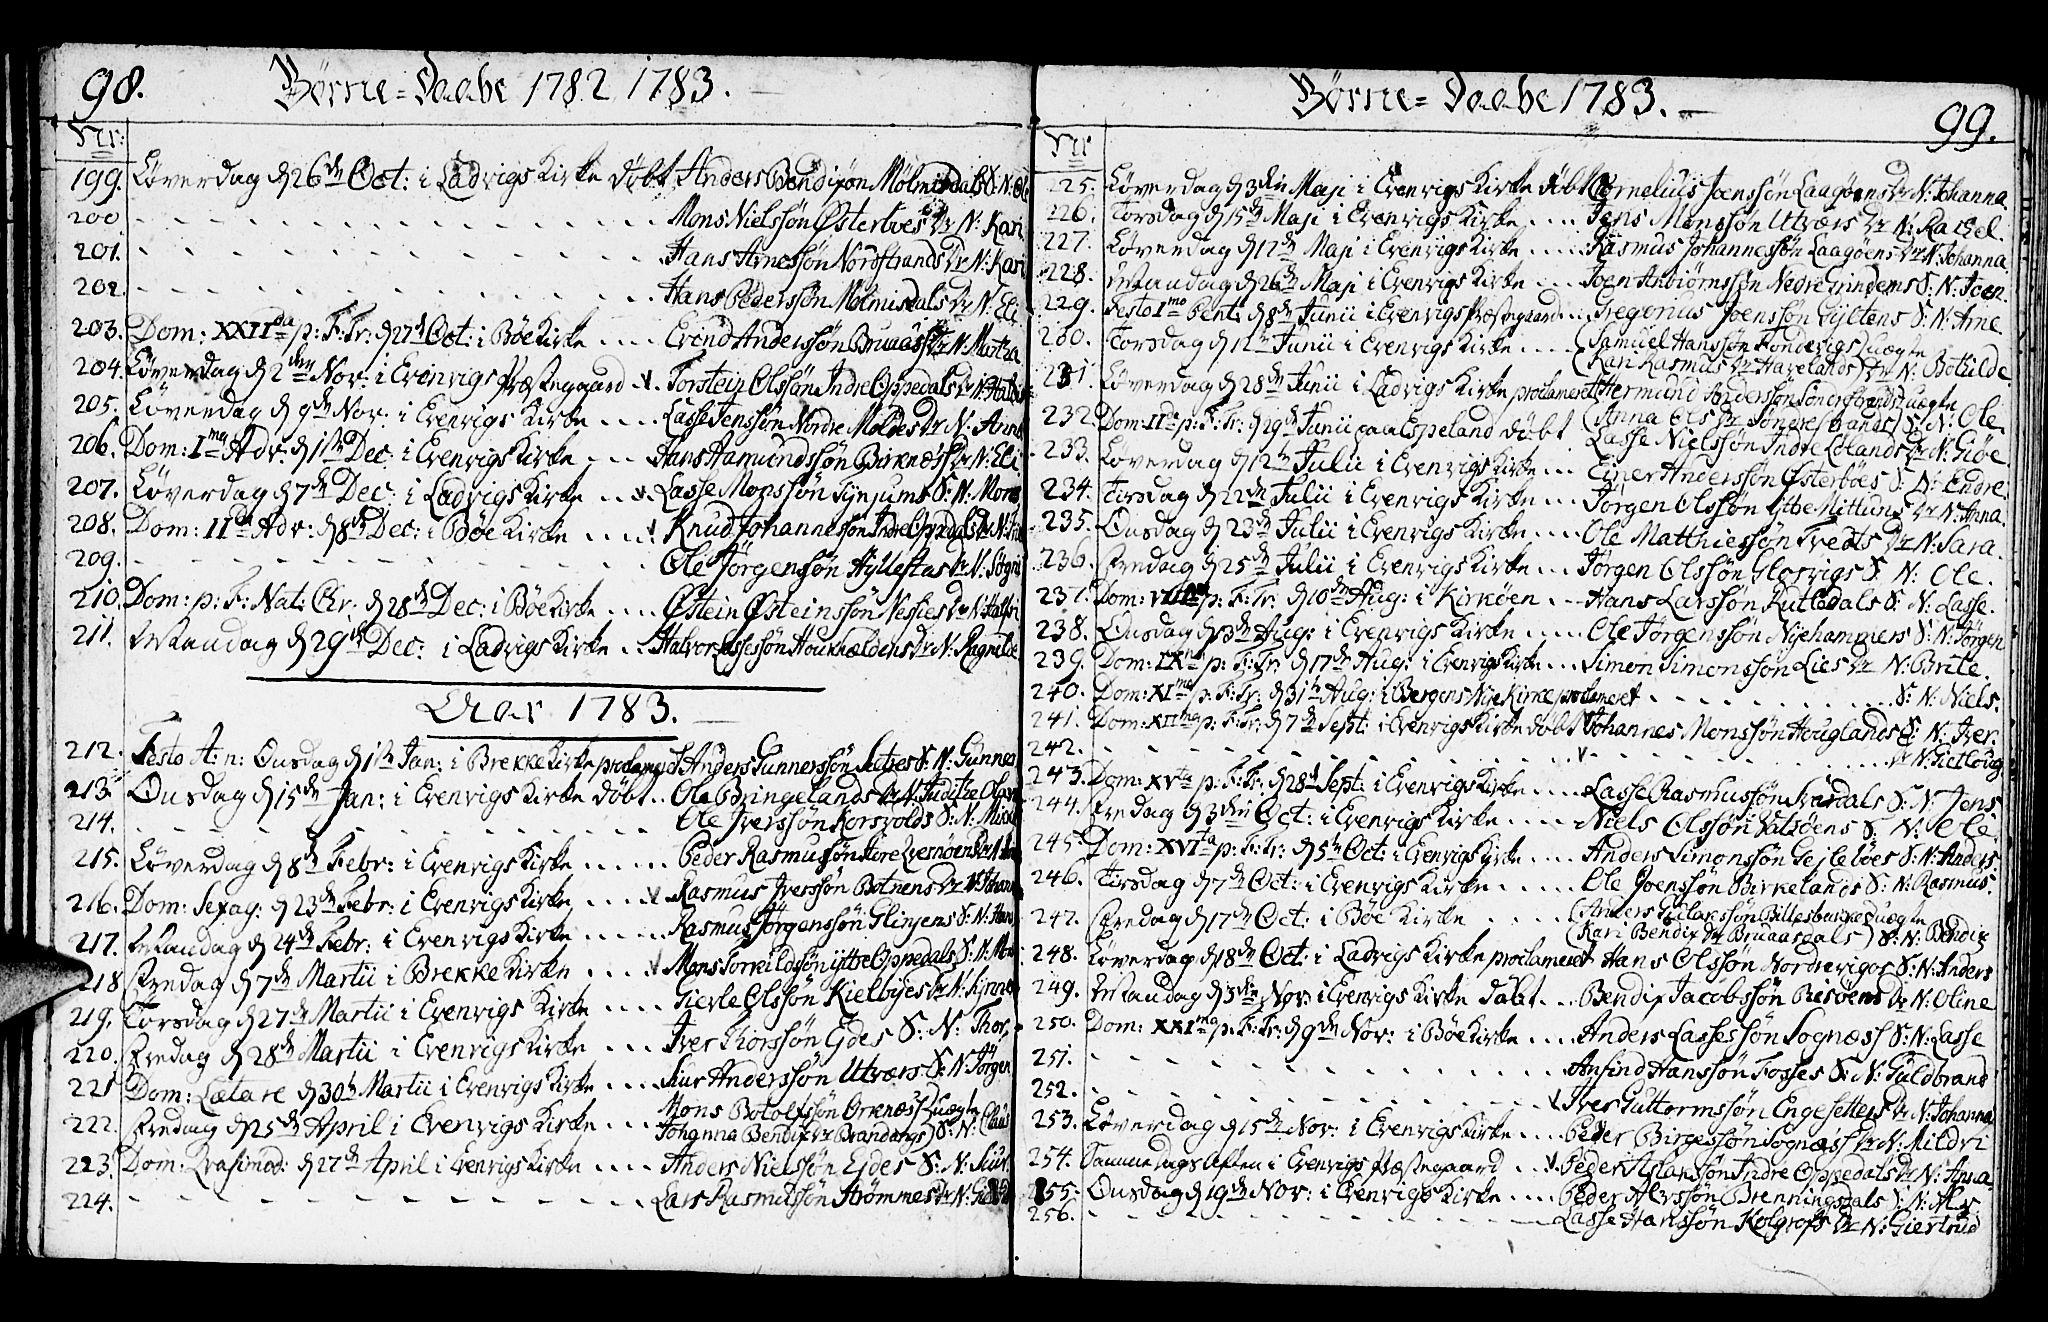 98. Børne=Daabe 1782 1783.
Nr:
199. Løverdag d 26de Oct: i Ladvigs Kirke døbt Anders Bendixøn Mølmisdals S: N: Ole
200 Mons Nielssøn Østerbøes Dr N: Kari
201. Hans Arnessøn Nordstrands Dr N: Kari
202. Hans Pederssøn Mølmisdals Dr N: Eli
203. Dom: XXIIda p: F: Tr: d 27d Oct: i Bøe Kirke Erind Anderssøn Bruaas Dr N: Martha
204. Løverdag d 2den Nov: i Evenvigs Præstegaard Torstein Olssøn Indre Oppedals Dr N:
205. Løverdag d 9de Nov: i Evenvigs Kirke Lasse Jenssøn Nordre Moldes Dr N: Anne
206. Dom: Ima Adv: d 1ste Dec: i Evenvigs Kirke Hans Aamundssøn Birknæs Dr N: Eli
207. Løverdag d 7de Dec: i Ladvigs Kirke Lasse Monssøn Tynjums S: N: Mons
208. Dom: IIda Adv: d 8de Dec: i Bøe Kirke Knud Johannessøn Indre Oppedals Dr N:
209. Ole Jørgenssøn Hyllestas Dr N: Søgni
210. Dom: p: F: Nat: Chr: d 28de Dec: i Bøe Kirke Østein Østeinssøn Nessies Dr N:
211. Maandag d 29de Dec: i Ladvigs Kirke Halvor Lassessøn Houkældens Dr N: Ragnilde
Aar 1783.
212. Festo A: n: Onsdag d 1ste Jan: i Brekke Kirke proclameret Anders Gunnerssøn Sætres S: N: Gunner
213. Onsdag d 15de Jan: i Evenvigs Kirke døbt Ole Bringelands Dr N: Judithe
214. Ole Iverssøn Korsvolds S: N:
215. Løverdag d 8de Febr: i Evenvigs Kirke Peder Rasmussøn
216. Dom: Sexag: d 23de Febr: i Evenvigs Kirke Rasmus Iverssøn Botnens Dr N: Johanna
217. Maandag d 24de Febr: i Evenvigs Kirke Rasmus Jørgenssøn Glinjens S: N: Hans
218 Fredag d 7de Martii i Brekke Kirke Mons Torkildssøn Ytbe Oppedals S: N: Mons
219. Torsdag d 27de Martii i Evenvigs Kirke Gierle Olssøn Kielbyes Dr N:
220. Fredag d 28de Martii i Evenvigs Kirke Iver Thorssøn Eides S: N: Thor,
221 Dom: Lætare d 30te Martii i Evenvigs Kirke Siur Anderssøn Utværs S: N: Jørgen
222. Fredag d 25de April i Evenvigs Kirke Mons Botolfssøn Orenæs uægte
Johanna Bendix Dr Brandangs S: N: Claus
223. Dom: Qvasimod: d 27de April i Evenvigs Kirke Anders Nielssøn Eides S: N: Siur.
224. Lars Rasmussøn Strømmes Dr N:
Børne=Daabe 1783. 99.
Nr
225. Løverdag d 3die Maji i Evenvigs Kirke døbt Cornelius Joenssøn Laagøens Dr N: Johanna
226. Torsdag d 15de Maji i Evenvigs Kirke Jens Monssøn Utværs Dr N: Rachel.
227. Løverdag d 17de Maji i Evenvigs Kirke Rasmus Johannessøn Laagøens Dr N: Johanna
228. Maandag d 26de Maji i Evenvigs Kirke Joen Anbiørnssøn Nedre Trindems S: N: Joen.
229. Festo Imo Pent: d 8de Junii i Evenvigs Præstegaard Gregorius Joenssøn Gyltens S: N: Arne
230. Torsdag d 12te Junii i Evenvigs Kirke Samuel Hanssøn Fondevigs uægte
Kari Rasmus Dr Havelands Dr N: Botilde
231. Løverdag d 28de Junii i Ladvigs Kirke proclameret Hermund Anderssøn Sønderstrands uægte
Anna Ols Dr Søndrestrands S: N: Ole.
232. Dom: IIda p: F: Tr: d 29de Junii paa Espeland døbt Lasse Nielssøn Indre Lølands Dr N: Giøe
233. Løverdag d 12te Julii i Evenvigs Kirke Einer Anderssøn Østerbøes S: N: Endre
234. Tirsdag d 22de Julii i Evenvigs Kirke Jørgen Olssøn Ytbe Mittuns Dr N: Anna.
235. Onsdag d 23de Julii i Evenvigs Kirke Ole Matthiessøn Tredts Dr N: Sara.
236. Fredag d 25de Julii i Evenvigs Kirke Jørgen Olssøn Glosvigs S: N: Ole.
237. Dom: p: F: Tr: d 10de Aug: i Kirkøen Hans Larssøn Rutledals S: N: Lasse.
238. Onsdag d 13de Aug: i Evenvigs Kirke Ole Jørgenssøn Nyehammers S: N: Jørgen
239. Dom: IXna p: F: Tr: d 17de Aug: i Evenvigs Kirke Simon Simonssøn Lies Dr N: Brite.
240. Dom: XIma p: F: Tr: d 31te Aug: i Bergens Nye Kirke proclameret S: N: Niels.
241. Dom: XIIma p: F: Tr: d 7de Sept: i Evenvigs Kirke døbt Johannes Monssøn Houglands S: N: Iver.
242. Dr N: Gietloug
243. Dom: XVta p: F: Tr: d 28de Sept: i Evenvigs Kirke Lasse Rasmussøn Svardals S: N: Jens
244. Fredag d 3die Oct: i Evenvigs Kirke Niels Olssøn Valsøens S: N: Ole
245. Dom: XVIta p: F: Tr: d 5te Oct: i Evenvigs Kirke Anders Simonssøn Gejlebøes S: N: Anders
246. Tirsdag d 7de Oct: i Evenvigs Kirke Ole Joenssøn Birkelands S: N: Rasmus.
247. Fredag d 17de Oct: i Bøe Kirke Anders Billesbakkes uægte
Kari Bendix Dr Bruaasdals S: N: Bendix
248. Løverdag d 18de Oct: i Ladvigs Kirke proclameret Hans Olssøn Nordrevigos S: N: Anders
249. Maandag d 3die Nov: i Evenvigs Kirke døbt Bendix Jacobssøn Risøens Dr N: Oline
250. Dom: XXIma p: F: Tr: d 9de Nov: i Bøe Kirke Anders Lassessøn Sognæss S: N: Lasse
251. Anfind Hanssøn Fosses S: N: Guldbrand
252. Iver Guttormssøn Engesetters Dr N: Johanna
253. Løverdag d 15de Nov: i Evenvigs Kirke Peder Birgessøn Sognæss Dr N: Mildri
254. Samme Dags Aften i Evenvigs Præstegaard Peder Aslakssøn Indre Oppedals Dr N: Anna
255. Onsdag d 19de Nov: i Evenvigs Kirke Peder Brenningsdals S: N:
256. Lasse Hanssøn Kolgrofs Dr N: Giertrud